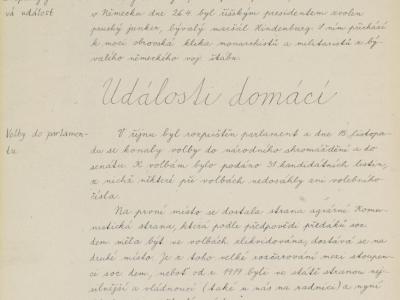 vá událost
v Německu dne 26.4. byl říšským presidentem zvolen
pruský junker, bývalý maršál Hindenburg. S ním přichází
k moci obrovská klika monarchistů a militaristů z bý-
valého německého voj. štábu.
Události domácí
Volby do parlamen-
tu
V říjnu byl rozpuštěn parlament a dne 15. listopa-
du se konaly volby do národního shromáždění a do
senátu. K volbám bylo podáno 31 kandidátních listin,
z nichž některé při volbách nedosáhly ani volebního
čísla.
Na první místo se dostala strana agrární. Komu-
nistická strana, která podle předpovědi předáků soc.
dem. měla být ve volbách zlikvidována, dostává se na
druhé místo. Je z toho velké rozčarování mezi stoupen-
ci soc. dem., neboť od r. 1919 byla ve státě stranou nej-
silnější a vládnoucí (také u nás na radnici) a nyní